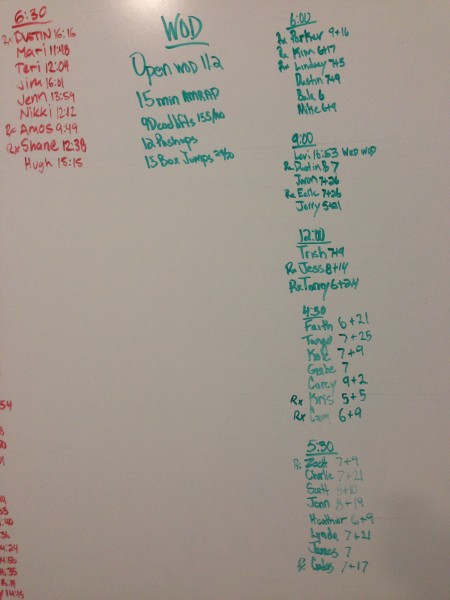 6:30
Rx DUSTIN 16:16
Mari 11:48
Teri 12:04
Jim 16:01
Jenn 13:59
Nikki 12:12
Rx Amos 9:49
Rx Shane 12:38
Hugh 15:15
WOD
Open WOD 11.2
15 min AMRAP
9 Deadlifts 155/100
12 Pushups
15 Box Jumps 24/20
6:00
Rx Parker 9+16
Rx Kim 6+17
Rx Lindsey 7+5
Dustin 7+9
6
Mike 6+9
9:00
Levi 16:53 WED WOD
Rx Dustin B 7
Jaron 7+26
Rx Earle 7+26
Jerry 5+21
12:00
Trish 7+9
Rx Jess 8+14
Rx 6+24
4:30
Faith 6+21
Tango 7+25
Kale 7+9
Gabe 7
Corey 9+2
Rx Kris 5+5
Rx Cam 6+9
5:30
Zach 7+9
Charlie 7+21
Scott
Jenn 8+19
Heather 6+9
Lynda 7+21
James 7
7+17
54